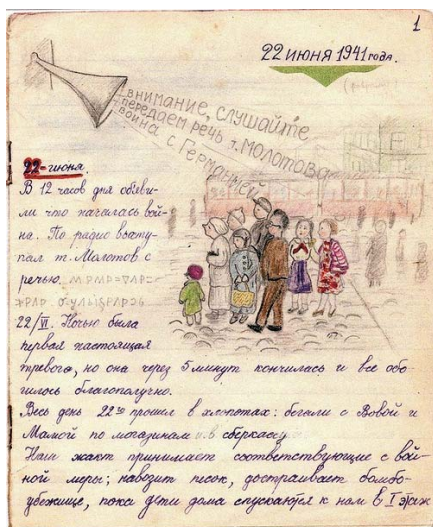 1
22 ИЮНЯ 1941 года.
ВНИМАНИЕ, СЛУШАЙТЕ
ПЕРЕДАЕМ РЕЧЬ т. МОЛОТОВА
ВОЙНА С ГЕРМАНИЕЙ
22-июня.
В 12 часов дня объяви-
ли что началась вой-
на. По радио высту-
пал т. Молотов с
речью.
22/VI. Ночью была
первая настоящая
тревога, но она через 5 минут кончилась и все обо-
шлось благополучно.
Весь день 22го прошел в хлопотах: бегали с Вовой и
Мамой по магазинам и в сберкассу.
Наш жакт принимает соответствующие с вой-
ной меры; навозит песок, достраивает бомбо-
убежище, пока дети дома спускаются к нам в I этаж